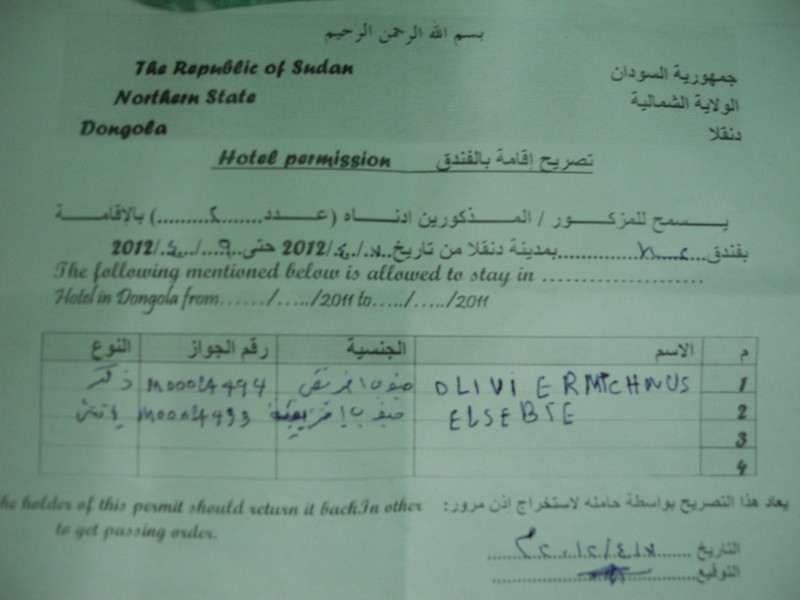 بسم الله الرحمن الرحيم
The Republic of Sudan جمهورية السودان
Northern State الولاية الشمالية
Dongola دنقلا
Hotel permission تصريح إقامة بالفندق
يسمح للمزكور / المذكورين ادناه (عدد.......٢.........) بالإقامة
بفندق.....................بمدينة دنقلا من تاريخ.../٤./2012 حتى..٩../.٤../2012
The following mentioned below is allowed to stay in .....................
Hotel in Dongola from....../...../2011 to...../...../2011
م الاسم الجنسية رقم الجواز النوع
1 OLIVIER جنوب افريقى M00024494 ذكر
2 ELSEBIE جنوب إفريقية M00024493
3
4
he holder of this permit should return it backIn other يعاد هذا التصريح بواسطة حامله لاستخراج إذن مرور:
to get passing order.
التاريخ
التوقيع